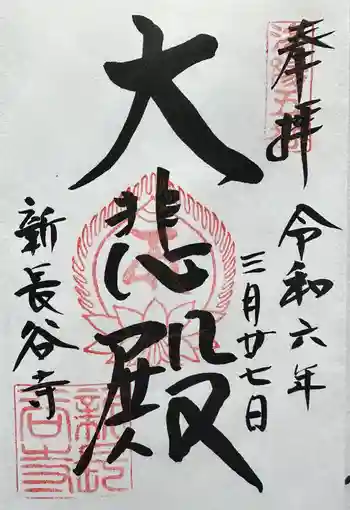 奉拝
令和六年
三月廿七日
大悲殿
新長谷寺